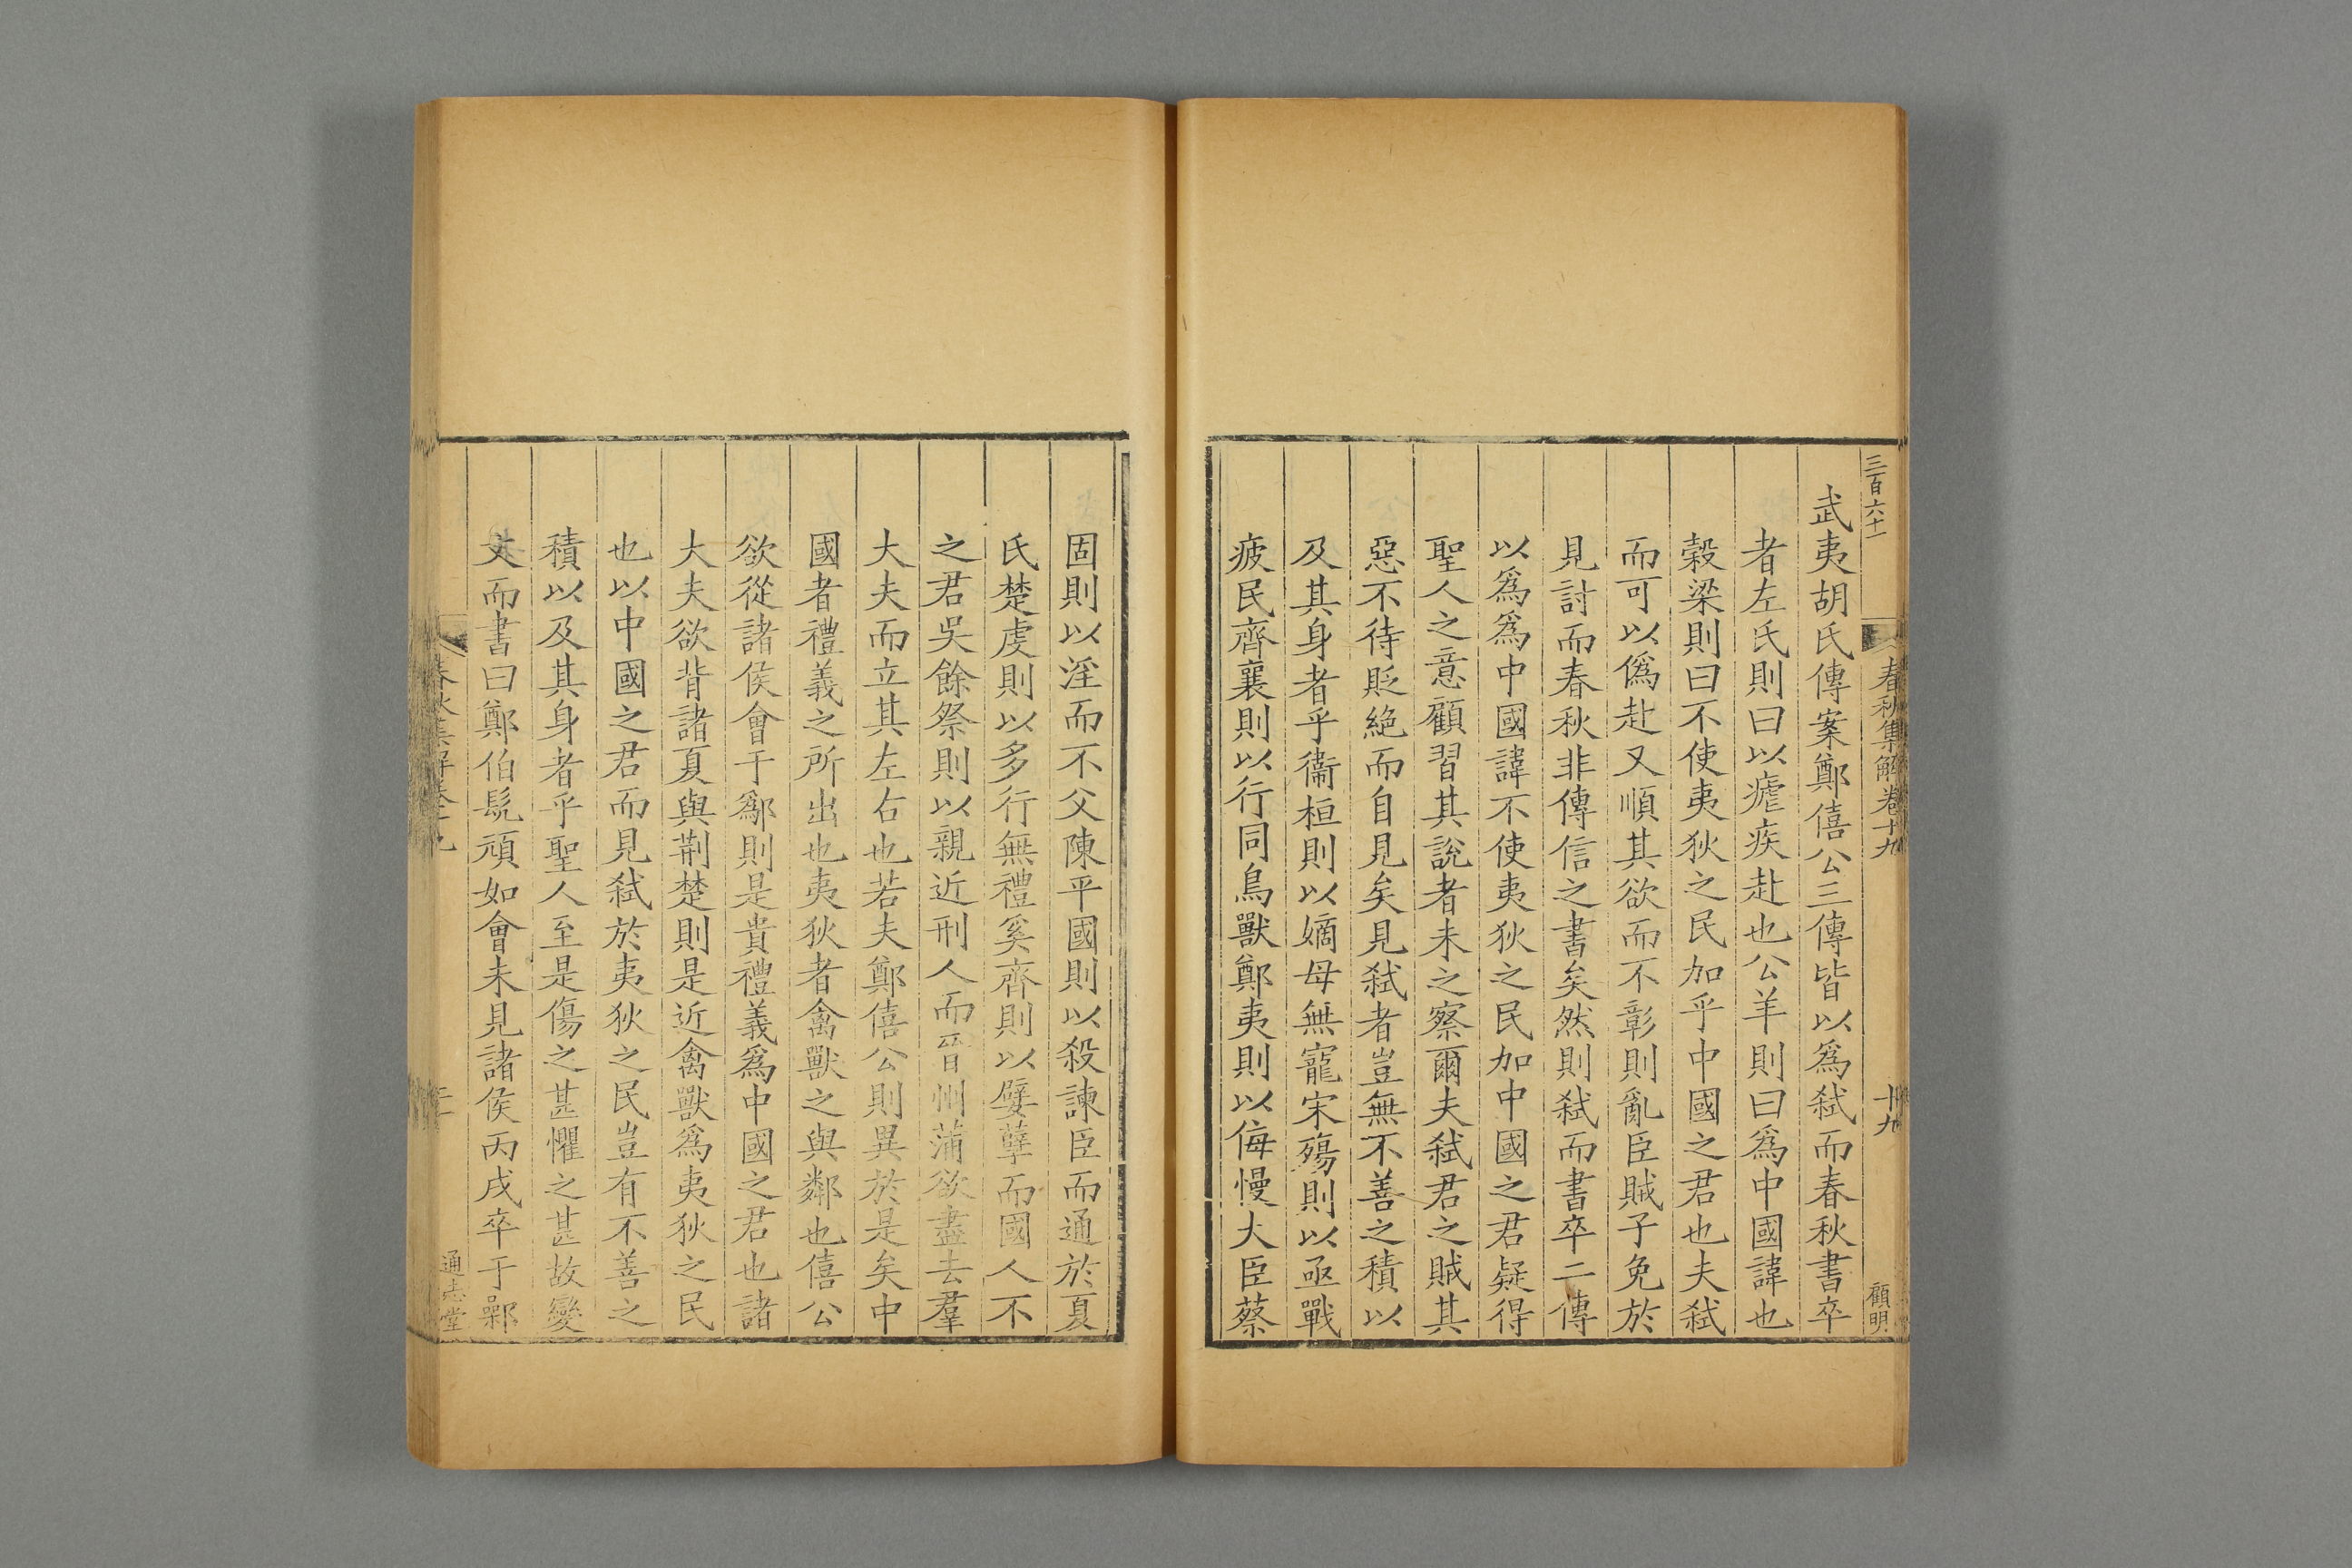 三百六十一
春秋集解卷十九
十九
顧明
武夷胡氏傳案鄭僖公三傳皆以爲弑而春秋書卒
者左氏則曰以瘧疾赴也公羊則曰爲中國諱也
榖梁則曰不使夷狄之民加乎中國之君也夫弑
而可以僞赴又順其欲而不彰則亂臣賊子免於
見討而春秋非傳信之書矣然則弑而書卒二傳
以爲爲中國諱不使夷狄之民加中國之君疑得
聖人之意顧習其說者未之察爾夫弑君之賊其
惡不待貶絕而自見矣見弑者豈無不善之積以
及其身者乎衞桓則以嫡母無寵宋殤則以亟戰
疲民齊襄則以行同鳥獸鄭夷則以侮慢大臣蔡
固則以淫而不父陳平國則以殺諫臣而通於夏
氏楚虔則以多行無禮奚齊則以嬖孽而國人不
之君吳餘祭則以親近刑人而晉州蒲欲盡去羣
大夫而立其左右也若夫鄭僖公則異於是矣中
國者禮義之所出也夷狄者禽獸之與鄰也僖公
欲從諸侯會于鄬則是貴禮義爲中國之君也諸
大夫欲背諸夏與荆楚則是近禽獸爲夷狄之民
也以中國之君而見弑於夷狄之民豈有不善之
積以及其身者乎聖人至是傷之甚懼之甚故變
文而書曰鄭伯髠頑如會未見諸侯丙戌卒于鄵
春秋集解卷十九
通志堂